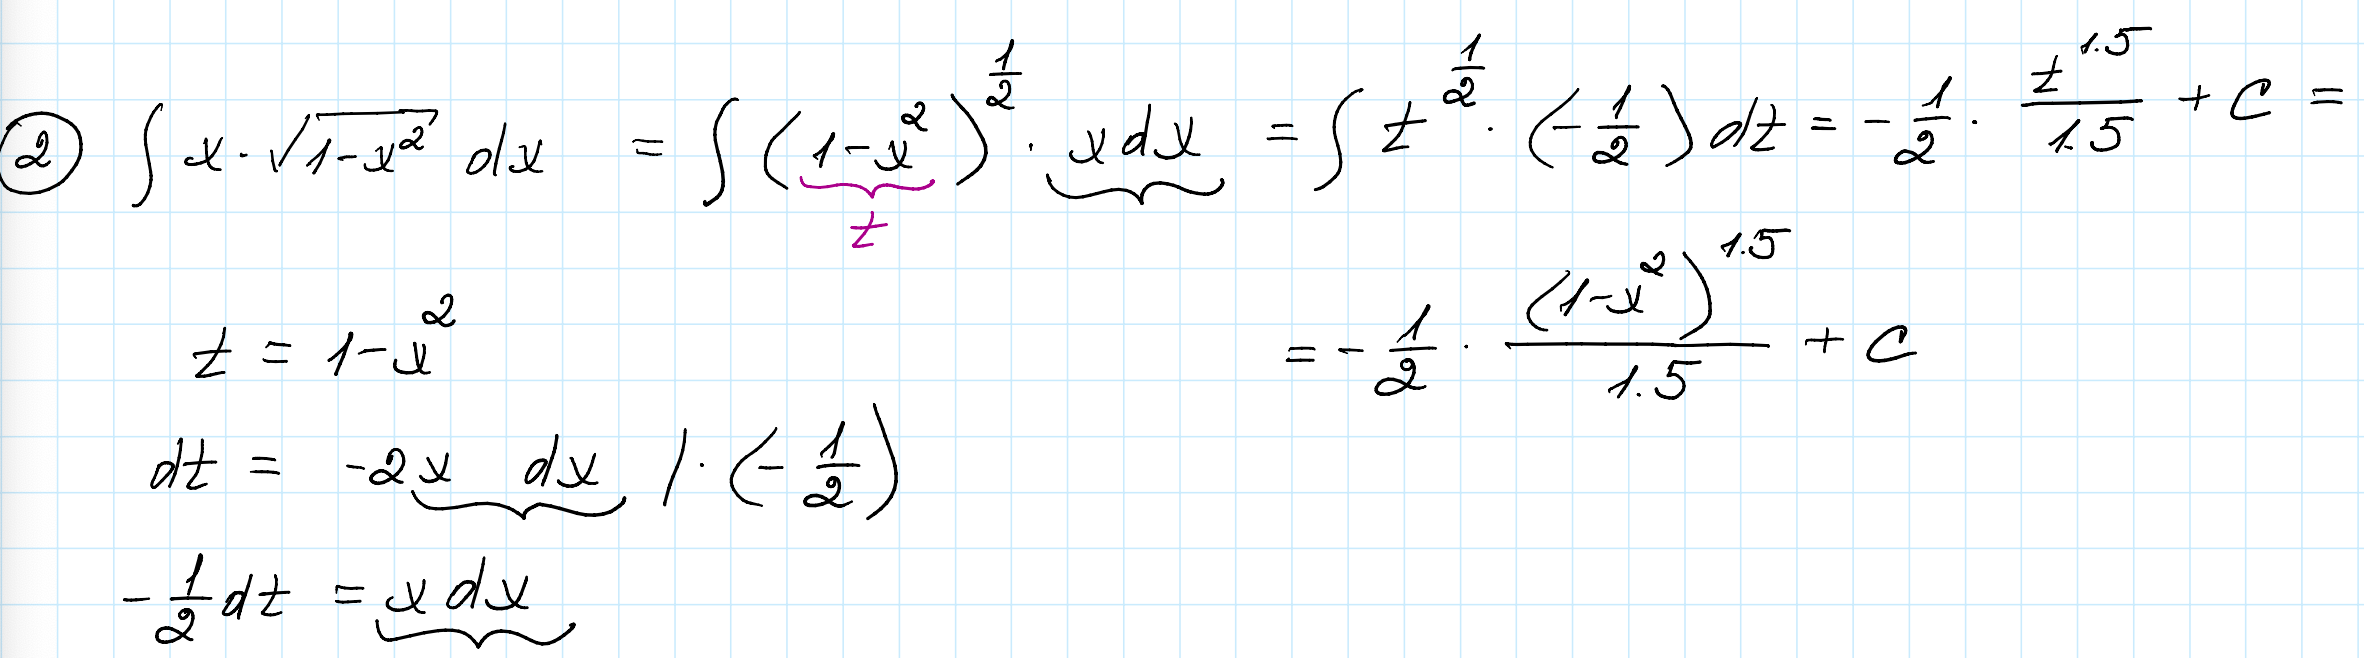 ② ∫ x·√(1-x²) dx = ∫ (1-x²)^(1/2) · x dx = ∫ t^(1/2) · (-1/2) dt = -1/2 · t^1.5/1.5 + C =
t
t = 1-x²
= -1/2 · (1-x²)^1.5/1.5 + C
dt = -2x dx /·(-1/2)
-1/2 dt = x dx